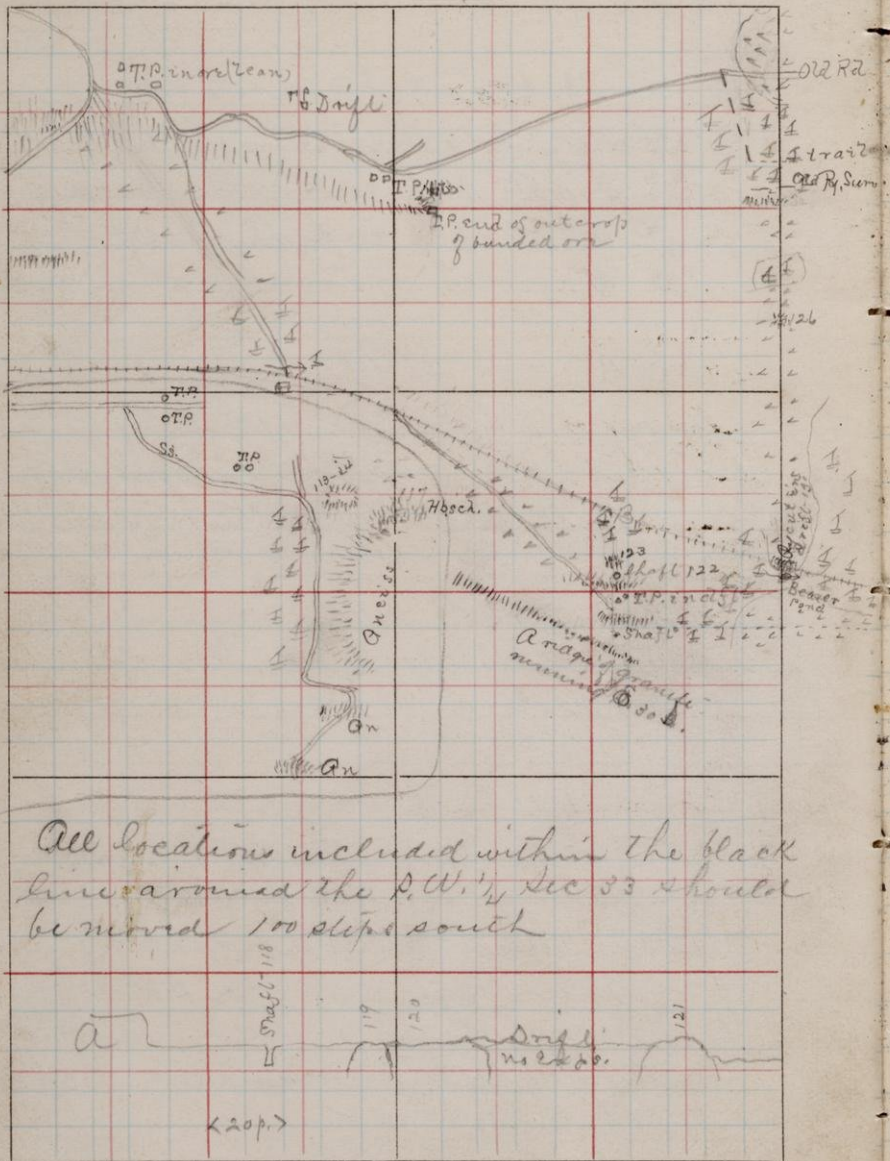 T.P. in ore (lean)
Drift
Old Rd
trail
Old Ry. Surv.
T.P.
T.P. end of outcrop
of banded ore
126
T.P.
T.P.
Ss.
T.P.
117
Hbsch.
123
Shaft 122
T.P. in
Shaft
Beaver
Pond
Gneiss
A ridge of granite
running E 30 S.
Gn
Gn
All locations included within the black
line around the S.W. 1/4 Sec 33 should
be moved 100 steps south
Shaft 118
119
120
121
A
Drift
no exps.
<20p.>